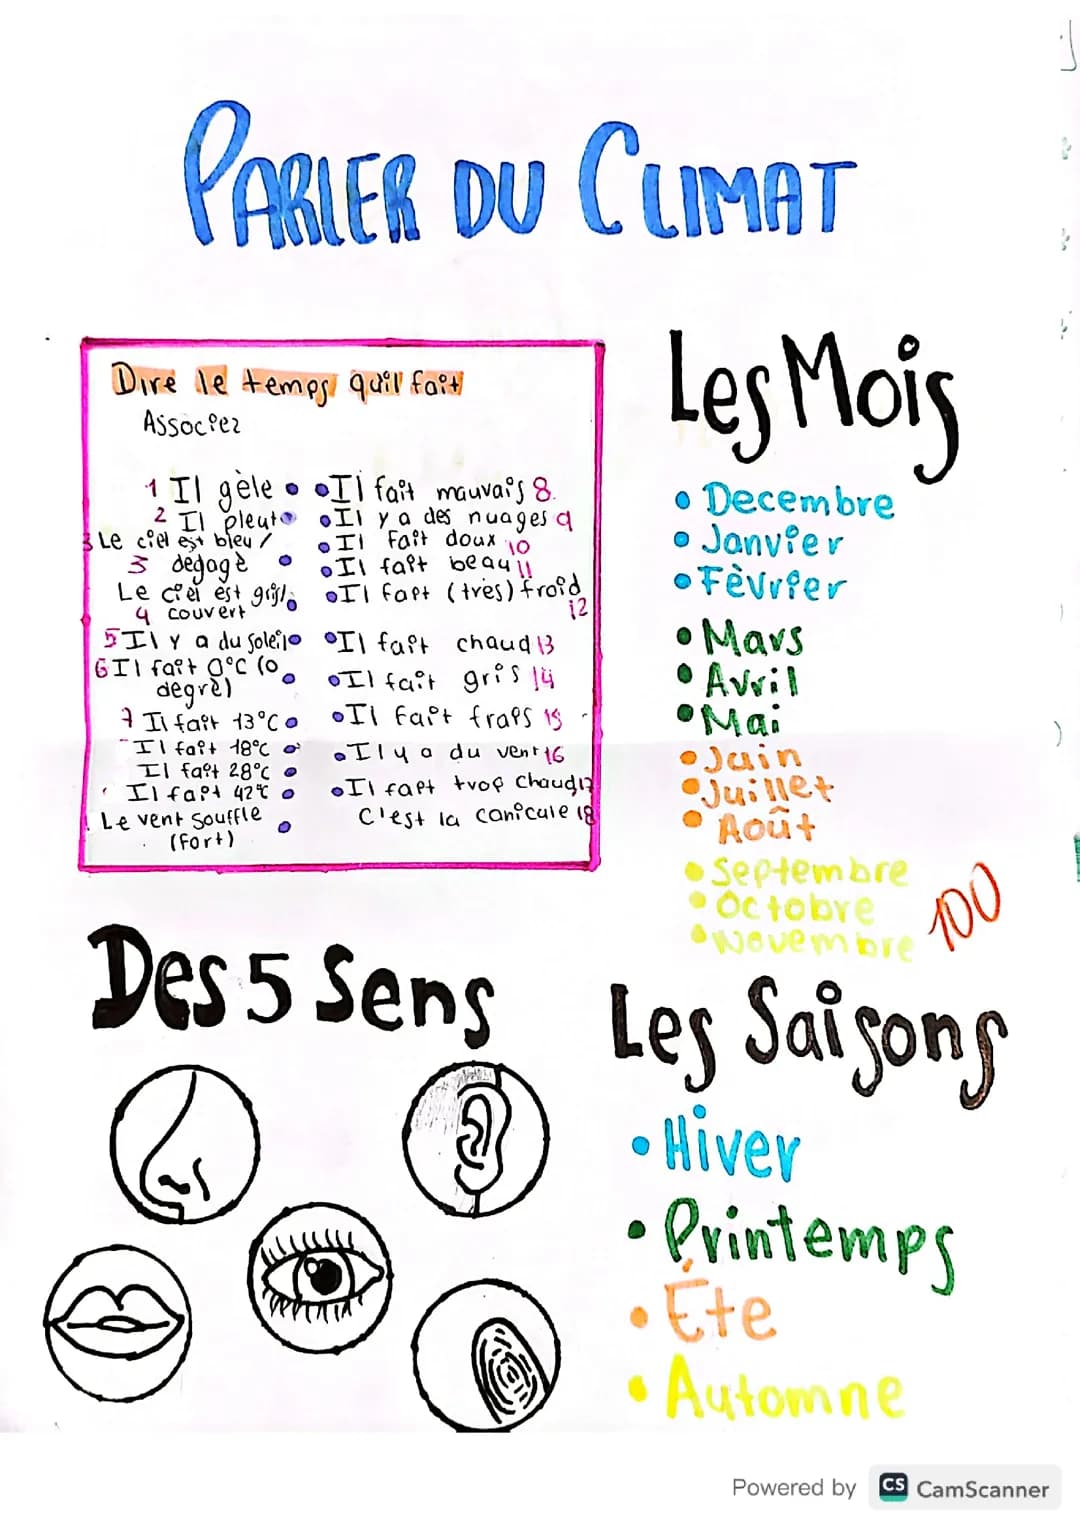 PARLER DU CLIMAT
Dire le temps qu'il fait
Associez
1 Il gèle
2 Il pleut
3 Le ciel est bleu /
3 degagè
Le ciel est gris/
4 couvert
5 Il y a du soleil
6 Il fait 0°C (0
degrè)
7 Il fait 13°C
Il fait 18°C
Il fait 28°C
Il fait 42°C
Le vent souffle
(Fort)
Il fait mauvais 8.
Il y a des nuages 9
Il fait doux 10
Il fait beau 11
Il fait (très) froid
12
Il fait chaud 13
Il fait gris 14
Il fait frais 15
Il y a du vent 16
Il fait trop chaud 17
C'est la canicule 18
Les Mois
Decembre
Janvier
Fèvrier
Mars
Avril
Mai
Juin
Juillet
Août
Septembre
Octobre
Novembre
100
Des 5 Sens
Les Saisons
Hiver
Printemps
Éte
Automne
Powered by CS CamScanner